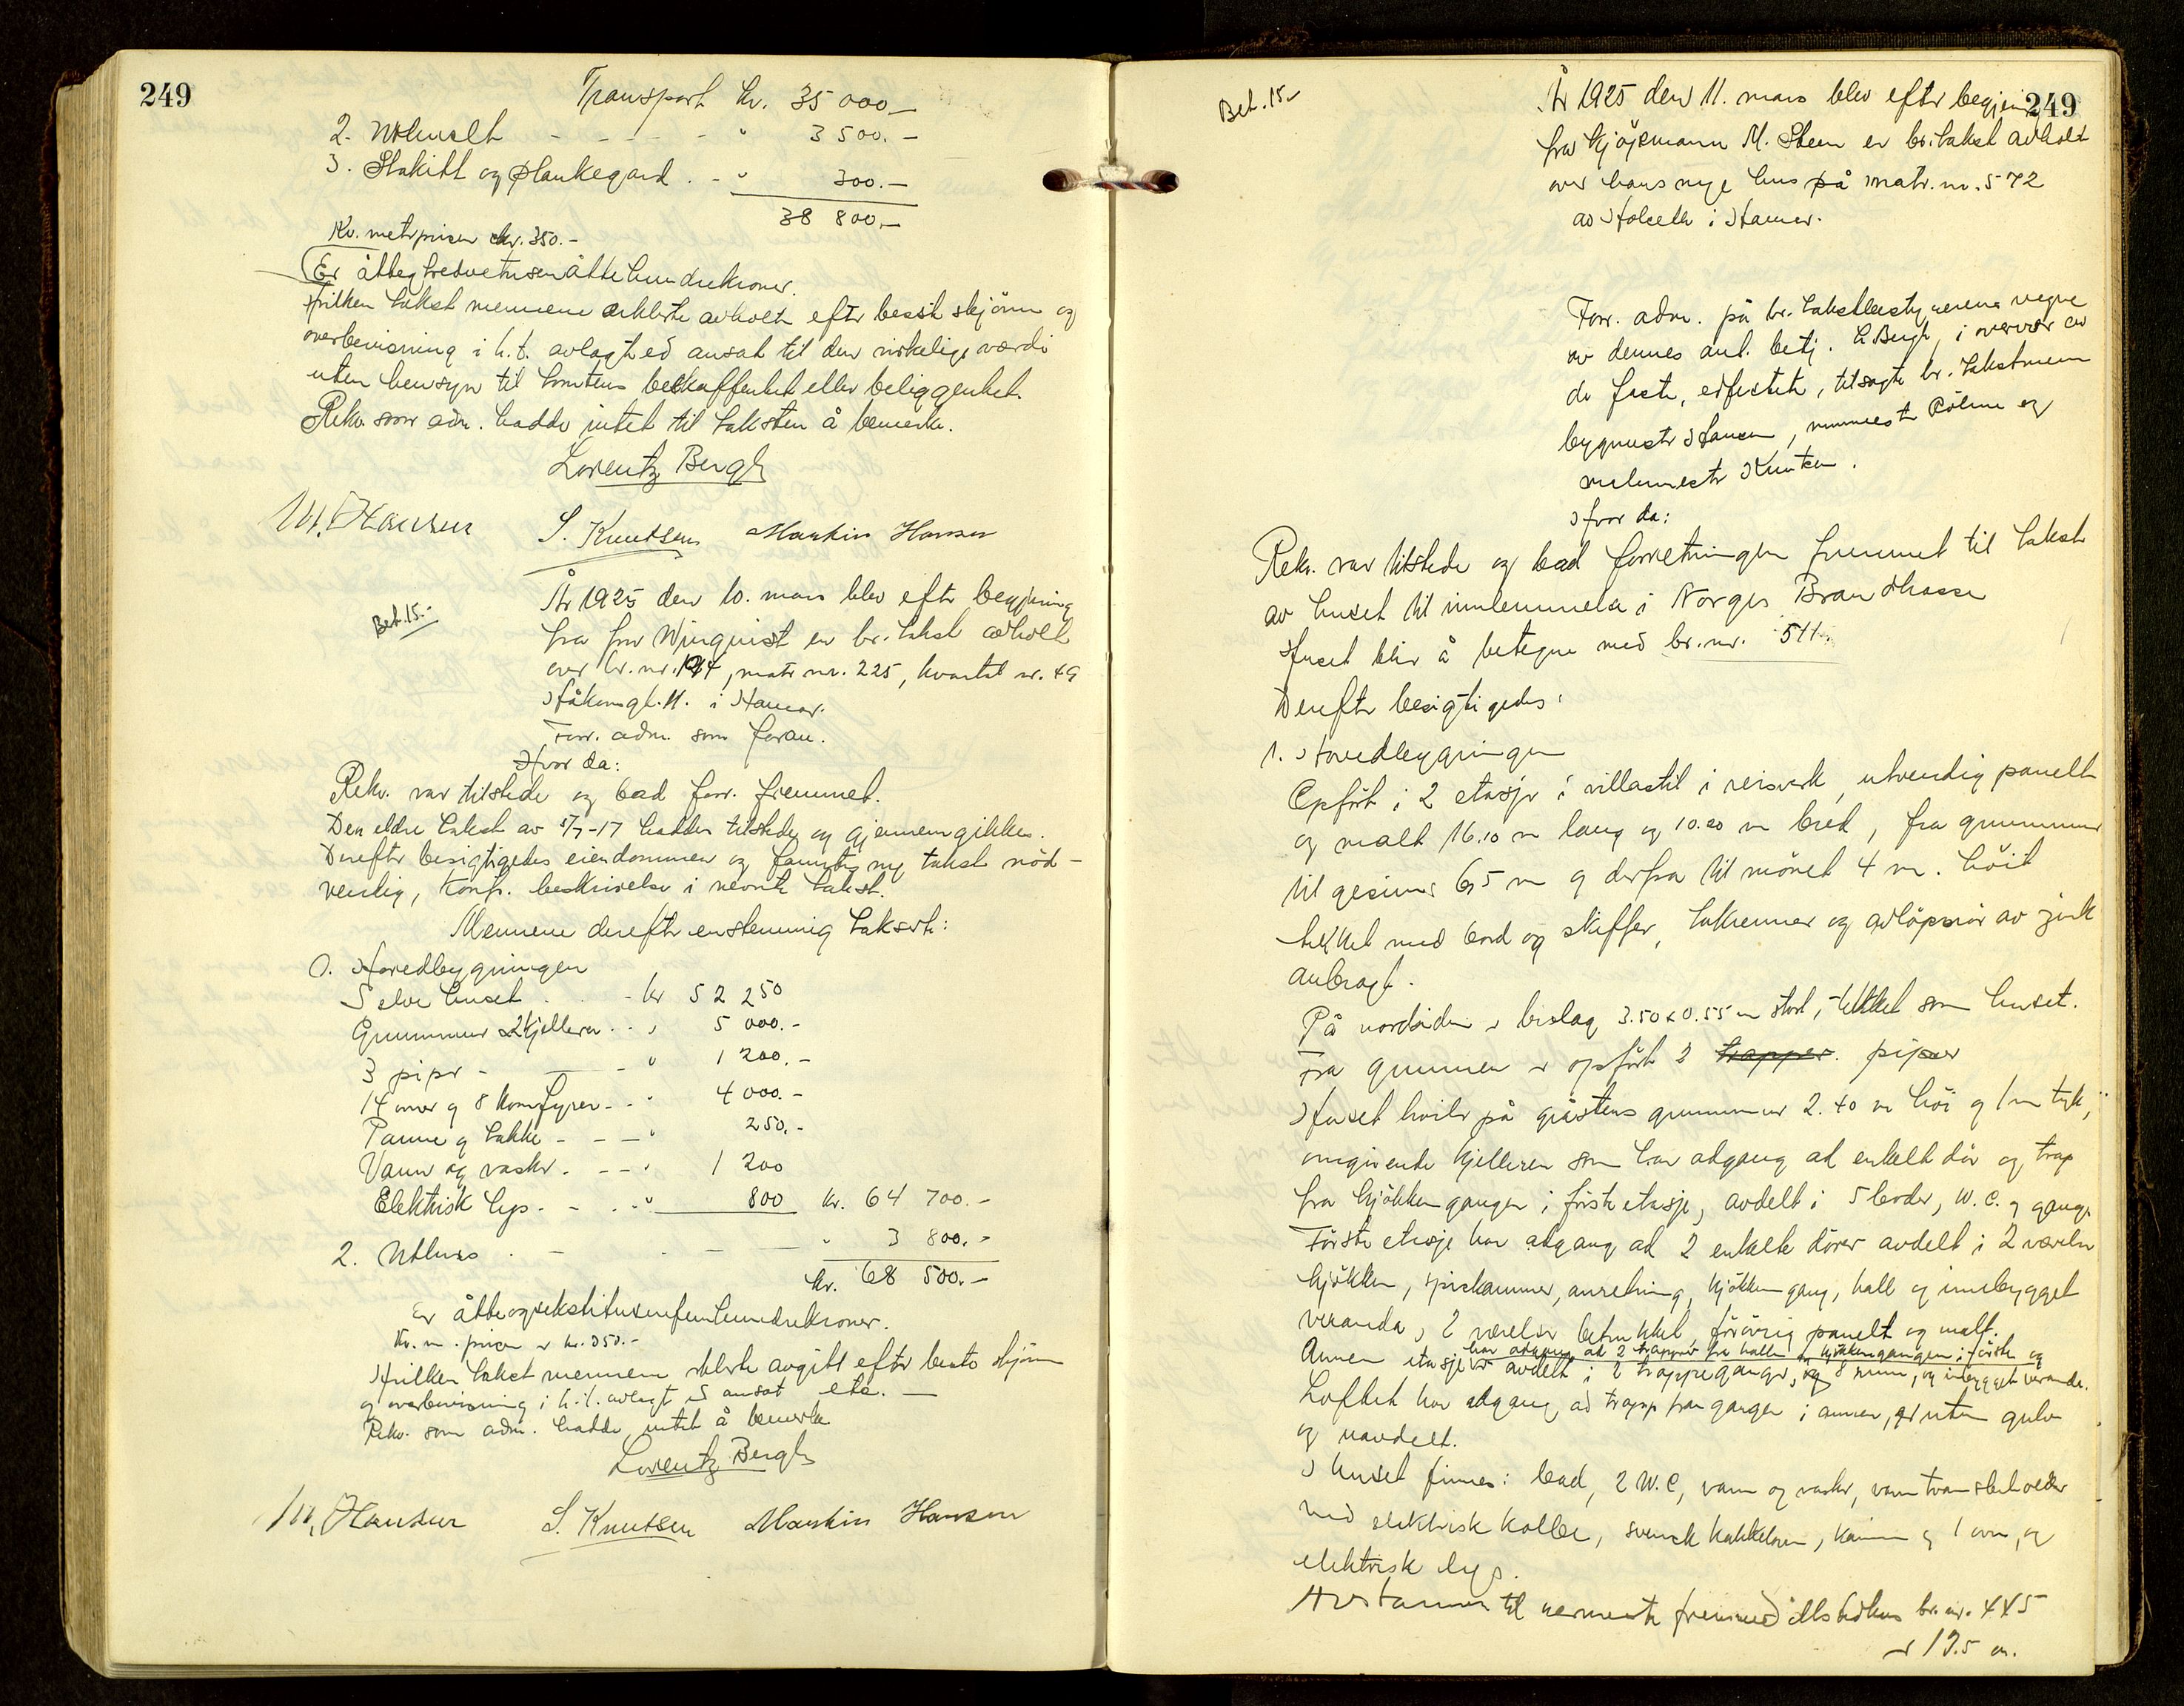 249
Transport kr. 35 000.-
2. Uthuselt - - - - " 3 500.-
3. Stakitt og plankegard . - " 300.-
38 800.-
Kv. metrprisen kr. 350.-
Er åtteogtredvetusenåttehundrekroner.
Hvilken takst mennene erklærte avholdt efter beste skjönn og
overbevisning i h.t. avlagt ed ansat til den virkelige værdi
uten hensyn til tomtens beskaffenhet eller beliggenhet.
Rekv. som adm. hadde intet til taksten å bemerke.
Lorentz Bergh
M. Hansen S. Knutsen Martin Hansen
Bet. 15.-
År 1925 den 10. mars blev efter begjæring
fra fru Winquist en br. takst avholdt
over br.nr. 194, matr. nr. 225, kvartal nr. 49
Håkonsgt. 11. i Hamar.
Forr. adm. som foran.
Hvor da:
Rekv. var tilstede og bad forr. fremmet.
Den eldre takst av 5/7-17 haddes tilstede og gjennemgikkes.
Derefter besigtigedes eiendommen og fantes ny takst nöd-
vendig, konf. beskrivelse i nevnte takst.
Mennene derefter enstemmig takserte:
1. Hovedbygningen
Selve huset . . . - kr 52 250
Grunnmur & kjelleren . . " 5 000.-
3 piper - - " 1 200.-
14 ovner og 8 komfyrer - . " 4 000.-
Panne og takke - - - " 250.-
Vann og vasker . - - " 1 200
Elektrisk lys - - . . " 800 kr. 64 700.-
2. Uthus . - - - " 3 800.-
kr. 68 500.-
Er åtteogsekstitusenfemhundrekroner.
Kv. m. prisen er kr. 350.-
Hvilken takst mennene erklærte avgitt efter beste skjönn
og overbevisning i h.t. avlagt ed ansat etc. -
Rekv. som adm. hadde intet å bemerke
Lorentz Bergh
M. Hansen S. Knutsen Martin Hansen
249
Bet. 15.-
År 1925 den 11. mars blev efter begjering
fra kjöpmann M. Steen en br. takst avholdt
over hans nye hus på matr. nr. 572
av Holsetb i Hamar.
Forr. adm. på br. takstbestyrerens vegne
av dennes aut. betj. L Bergh, i overvær av
de faste, edfestede, tilsagte br. takstmenn
bygmester Hansen, murmester Röhne og
malermester Knutsen.
Hvor da:
Rekv. var tilstede og bad forretningen fremmet til takst
av huset til innlemmelse i Norges Brandkasse
Huset blir å betegne med br. nr. 511.
Derefter besigtigedes:
1. Hovedbygningen
Opfört i 2 etasjer i villastil i reisverk, utvendig panelt
og malt 16.10 m lang og 10.20 m bred, fra grunnmur
til gesims 6,5 m og derfra til mönet 4 m. höit
tekket med bord og skiffer, takrenner og avlöpsrör av zink
anbragt.
På nordsiden er bislag 3.50 x 0.55 m stort, tekket som huset.
Fra grunnen er opfört 2 trapper. piper
Huset hviler på gråstens grunnmur 2.40 m höi og 1 m tyk,
omgivende kjelleren som har adgang ad enkelt dör og trap
fra kjökkengangen i förste etasje, avdelt i 5 boder, W.C. og gange
Förste etasje har adgang ad 2 enkelte dörer avdelt i 2 værelser
kjökken, spiskammer, anretning, kjökkengang, hall og innebygget
veranda, 2 værelser betrukket, forövrig panelt og malt.
har adgang ad 2 trapper fra hallen og kjökkengangen i förste og
Annen etasje er avdelt i 2 trappeganger, og 8 rum, og inebygget veranda.
Loftet har adgang ad trapp fra gangen i annen, er uten gulv
og uavdelt.
I huset finnes: bad, 2 W.C, vann og vasker, varmtvannsbeholder
med elektrisk kolbe, svensk kakkelovn, kamin og 1 ovn, og
elektrisk lys.
Avstannen til nermeste fremmed ildstedhus br. nr. 445
er 17.5 m.